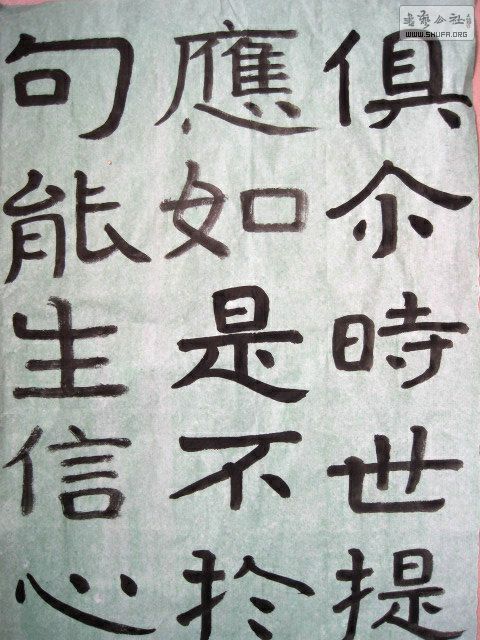 俱尒時世提
應如是不扵
句能生信心
書藝公社
WWW.SHUFA.ORG